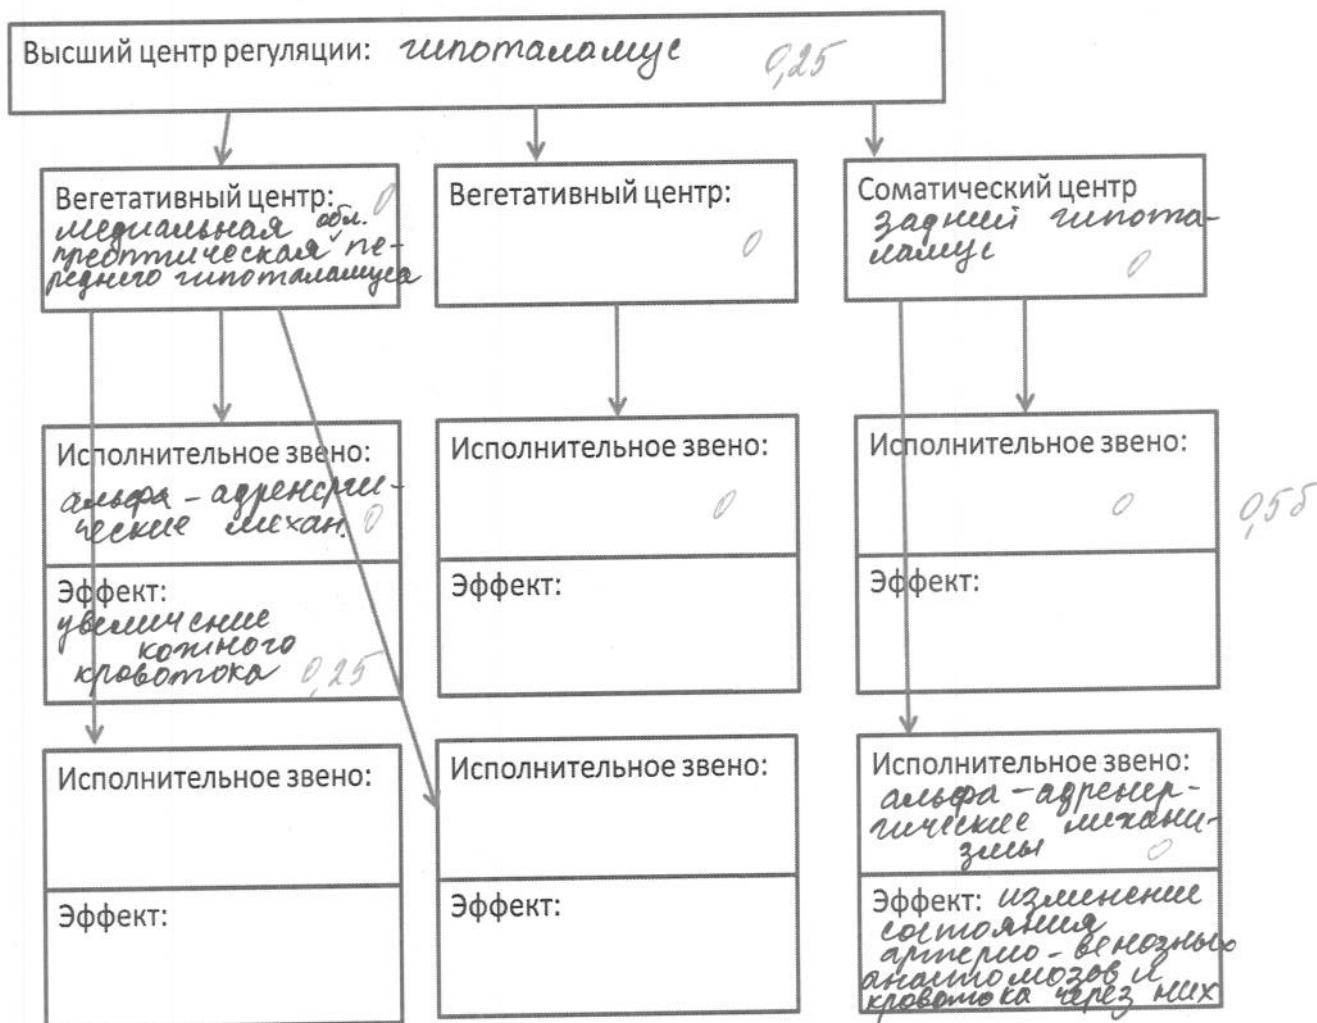 Высший центр регуляции: гипоталамус 0,25
Вегетативный центр: 0
медиальная обл.
преоптическая пе-
реднего гипоталамуса
Вегетативный центр:
0
Соматический центр
задний гипота-
ламус 0
Исполнительное звено:
альфа-адренерги-
ческие механ. 0
Эффект:
увеличение
кожного
кровотока 0,25
Исполнительное звено:
0
Эффект:
Исполнительное звено:
0
Эффект:
0,5б
Исполнительное звено:
Эффект:
Исполнительное звено:
Эффект:
Исполнительное звено:
альфа-адренер-
гические механи-
змы 0
Эффект: изменение
состояния
артерио-венозных
анастомозов и
кровотока через них